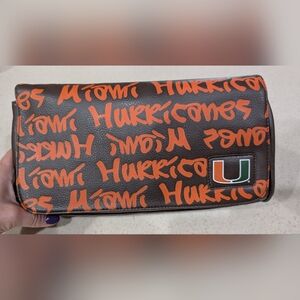 es Miami Hurricanes
Miami Hurrica
Hurr Miami canes
iami Hurrica
es Miami Hurricanes
U